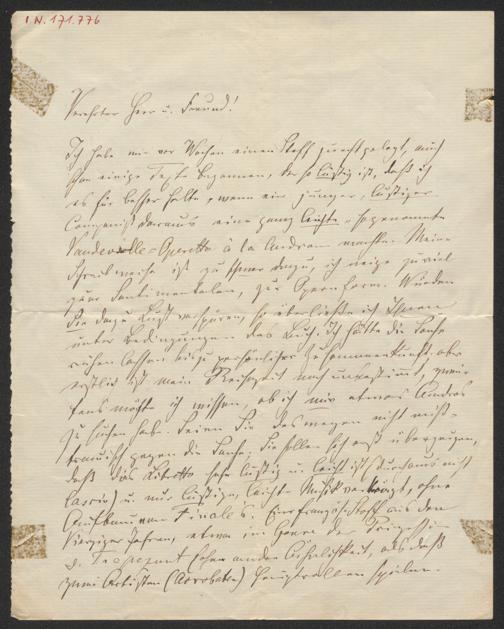 I.N. 171.776
Verehrter Herr u. Freund!
Ich habe mir vor Wochen einen Stoff zurechtgelegt, auch
schon einige Texte begonnen, der so lustig ist, daß ich
es für besser halte, wenn ein junger, lustiger
Componist daraus eine ganz leichte sogenannte
Vaudeville-Operette à la Audran machte. Meine
Schreibweise ist zu schwer dazu, ich neige zu viel
zum Sentimentalen, zur Opernform. Würden
Sie dazu Lust verspüren, so überließe ich Ihnen
unter Bedingungen das Buch. Ich hätte die Sache
ruhen lassen bis zu persönlicher Zusammenkunft, aber
erstlich ist mein Reisezeit noch unbestimmt, zwei-
tens möchte ich wissen, ob ich mir etwas Andres
zu suchen habe. Seien Sie deswegen nicht miß-
trauisch gegen die Sache; Sie sollen sich erst überzeugen,
daß das Libretto sehr lustig u. leicht ist (durchaus nicht
lasciv) u. nur lustige, leichte Musik verträgt, ohne
Aufbau von Finale's. Ein französ. Stoff aus den
Vierziger Jahren, etwa im Genre der Prinzessin
v. Trapezunt (ohne andre Ähnlichkeit, als daß
zwei Artisten (Acrobaten) Hauptrollen spielen.